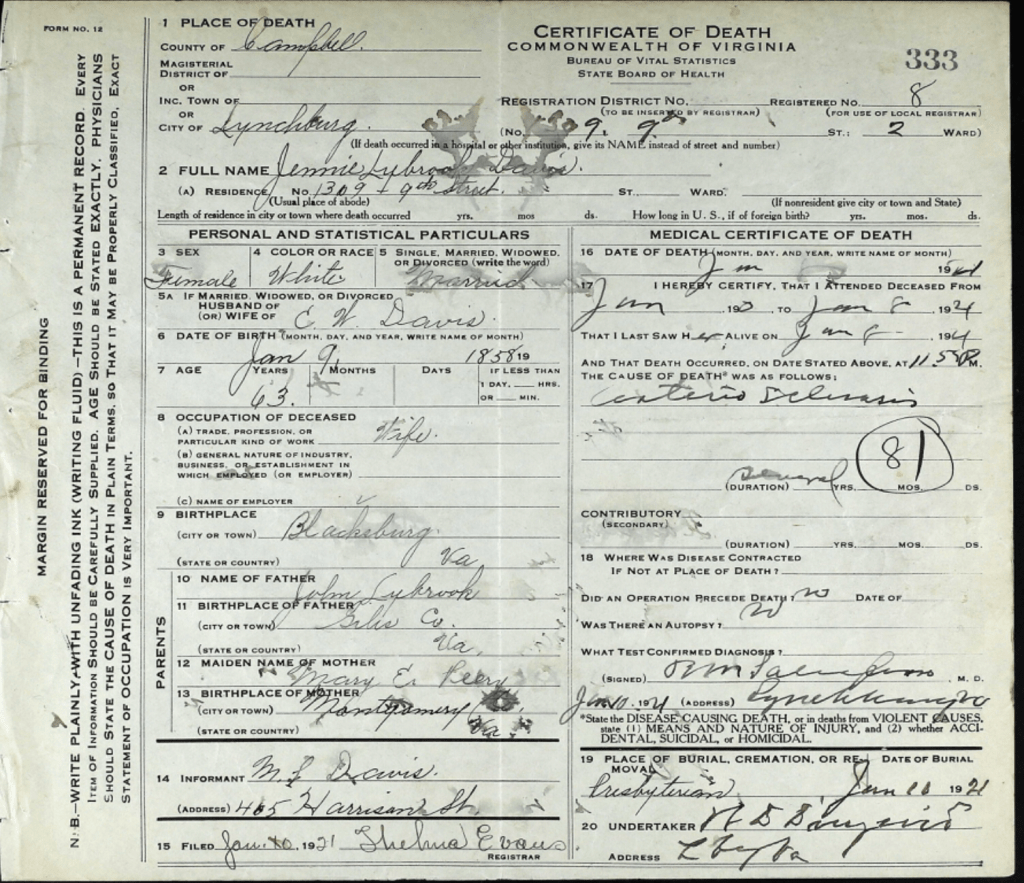 FORM NO. 12
MARGIN RESERVED FOR BINDING
N. B.—WRITE PLAINLY, WITH UNFADING INK (WRITING FLUID)—THIS IS A PERMANENT RECORD. EVERY
ITEM OF INFORMATION SHOULD BE CAREFULLY SUPPLIED. AGE SHOULD BE STATED EXACTLY. PHYSICIANS
SHOULD STATE THE CAUSE OF DEATH IN PLAIN TERMS, SO THAT IT MAY BE PROPERLY CLASSIFIED. EXACT
STATEMENT OF OCCUPATION IS VERY IMPORTANT.
1 PLACE OF DEATH
COUNTY OF Campbell.
MAGISTERIAL
DISTRICT OF
OR
INC. TOWN OF
OR
CITY OF Lynchburg.
CERTIFICATE OF DEATH
COMMONWEALTH OF VIRGINIA
BUREAU OF VITAL STATISTICS
STATE BOARD OF HEALTH
333
REGISTRATION DISTRICT NO. REGISTERED NO. 8
(TO BE INSERTED BY REGISTRAR) (FOR USE OF LOCAL REGISTRAR)
(NO. 9, 9th ST.: 2 WARD)
(If death occurred in a hospital or other institution, give its NAME instead of street and number)
2 FULL NAME Jennie Lybrook Davis.
(A) RESIDENCE, NO. 1309 - 9th Street. ST. WARD.
(Usual place of abode) (If nonresident give city or town and State)
Length of residence in city or town where death occurred yrs. mos ds. How long in U. S., if of foreign birth? yrs. mos. ds.
PERSONAL AND STATISTICAL PARTICULARS
3 SEX
Female
4 COLOR OR RACE
White
5 SINGLE, MARRIED, WIDOWED,
OR DIVORCED (write the word)
Married
5A IF MARRIED, WIDOWED, OR DIVORCED
HUSBAND OF
(OR) WIFE OF E. W. Davis.
6 DATE OF BIRTH (MONTH, DAY, AND YEAR, WRITE NAME OF MONTH)
Jan 9, 1858 19
7 AGE YEARS MONTHS DAYS IF LESS THAN
1 DAY, HRS.
OR MIN.
63.
8 OCCUPATION OF DECEASED
(A) TRADE, PROFESSION, OR
PARTICULAR KIND OF WORK Wife.
(B) GENERAL NATURE OF INDUSTRY,
BUSINESS, OR ESTABLISHMENT IN
WHICH EMPLOYED (OR EMPLOYER)
(C) NAME OF EMPLOYER
9 BIRTHPLACE
(CITY OR TOWN) Blacksburg.
(STATE OR COUNTRY) Va
PARENTS
10 NAME OF FATHER
John Lybrook
11 BIRTHPLACE OF FATHER
(CITY OR TOWN) Giles Co.
(STATE OR COUNTRY) Va.
12 MAIDEN NAME OF MOTHER
Mary E. Peery
13 BIRTHPLACE OF MOTHER
(CITY OR TOWN) Montgomery
(STATE OR COUNTRY) Va.
14 INFORMANT M. L Davis.
(ADDRESS) 405 Harrison St.
15 FILED Jan. 10, 1921 Thelma Evans
REGISTRAR
MEDICAL CERTIFICATE OF DEATH
16 DATE OF DEATH (MONTH, DAY, AND YEAR, WRITE NAME OF MONTH)
Jan 19
17 I HEREBY CERTIFY, THAT I ATTENDED DECEASED FROM
Jan 19 , TO Jan 8, 1921
THAT I LAST SAW HER ALIVE ON Jan 8 , 1921
AND THAT DEATH OCCURRED, ON DATE STATED ABOVE, AT 11.55 P M.
THE CAUSE OF DEATH* WAS AS FOLLOWS:
Arterio Sclerosis
81
(DURATION) Several YRS. MOS. DS.
CONTRIBUTORY
(SECONDARY)
(DURATION) YRS. MOS. DS.
18 WHERE WAS DISEASE CONTRACTED
IF NOT AT PLACE OF DEATH?
DID AN OPERATION PRECEDE DEATH? no DATE OF
WAS THERE AN AUTOPSY? no
WHAT TEST CONFIRMED DIAGNOSIS?
(SIGNED) M. D.
Jan 10. 1921 (ADDRESS) Lynchburg Va
*State the DISEASE CAUSING DEATH, or in deaths from VIOLENT CAUSES,
state (1) MEANS AND NATURE OF INJURY, and (2) whether ACCI-
DENTAL, SUICIDAL, or HOMICIDAL.
19 PLACE OF BURIAL, CREMATION, OR RE- DATE OF BURIAL
MOVAL
Presbyterian Jan 10 1921
20 UNDERTAKER
ADDRESS Lbg Va